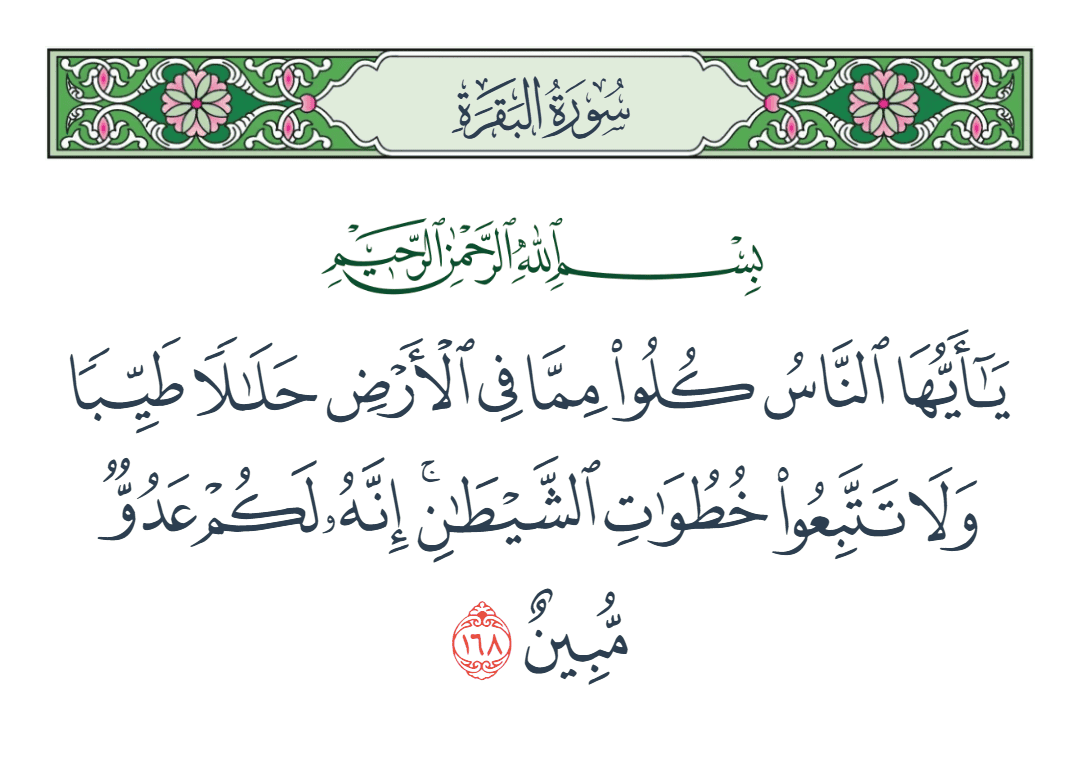 سُورَةُ البَقَرَةِ
بِسْمِ ٱللَّهِ ٱلرَّحْمَٰنِ ٱلرَّحِيمِ
يَـٰٓأَيُّهَا ٱلنَّاسُ كُلُوا۟ مِمَّا فِى ٱلْأَرْضِ حَلَـٰلًا طَيِّبًا
وَلَا تَتَّبِعُوا۟ خُطُوَٰتِ ٱلشَّيْطَـٰنِ ۚ إِنَّهُۥ لَكُمْ عَدُوٌّ
مُّبِينٌ ١٦٨